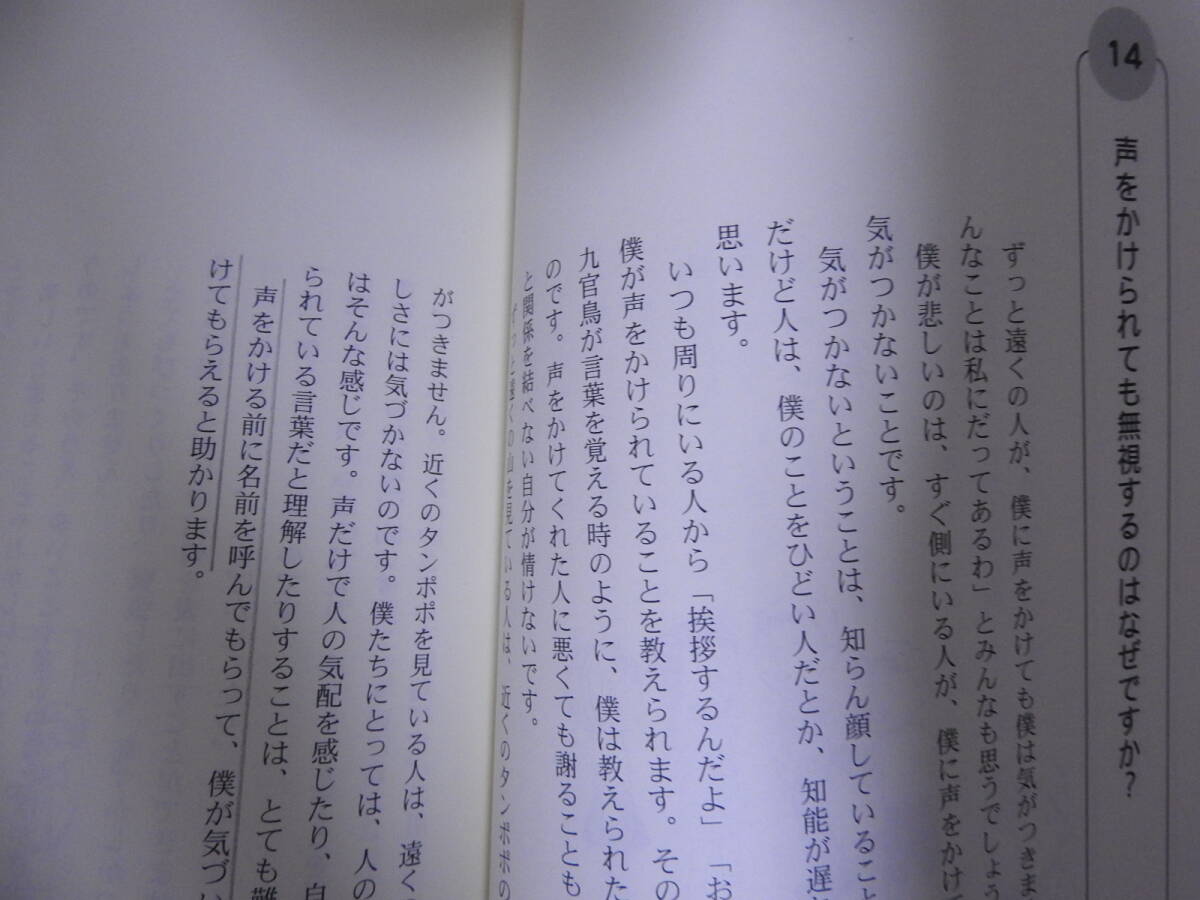 14
声をかけられても無視するのはなぜですか?
ずっと遠くの人が、僕に声をかけても僕は気がつきま
んなことは私にだってあるわ」とみんなも思うでしょう
僕が悲しいのは、すぐ側にいる人が、僕に声をかけて
気がつかないことです。
気がつかないということは、知らん顔していること
だけど人は、僕のことをひどい人だとか、知能が遅
思います。
いつも周りにいる人から「挨拶するんだよ」「お
僕が声をかけられていることを教えられます。その
九官鳥が言葉を覚える時のように、僕は教えられた
のです。声をかけてくれた人に悪くても謝ることも
と関係を結べない自分が情けないです。
ずっと遠くの山を見ている人は、近くのタンポポの
がつきません。近くのタンポポを見ている人は、遠く
しさには気づかないのです。僕たちにとっては、人の
はそんな感じです。声だけで人の気配を感じたり、自
られている言葉だと理解したりすることは、とても難
声をかける前に名前を呼んでもらって、僕が気づい
けてもらえると助かります。